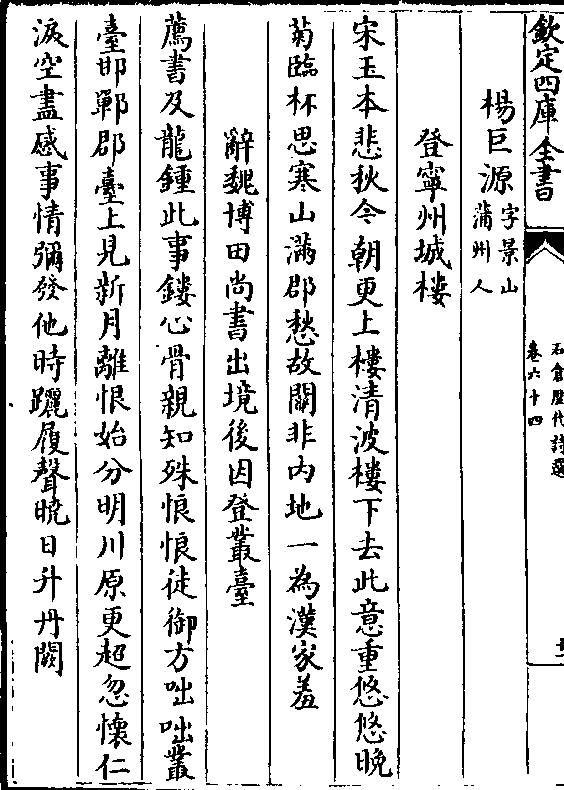 欽定四庫全書
石倉歷代詩選
卷六十四
楊巨源
字景山
蒲州人
登寧州城樓
宋玉本悲秋今朝更上樓清波樓下去此意重悠悠晚
菊臨杯思寒山滿郡愁故關非內地一為漢家羞
辭魏博田尚書出境後因登叢臺
薦書及龍鍾此事鏤心骨親知殊悢悢徒御方咄咄叢
臺邯鄲郡臺上見新月離恨始分明川原更超忽懷仁
淚空盡感事情彌發他時躧履聲曉日升丹闕